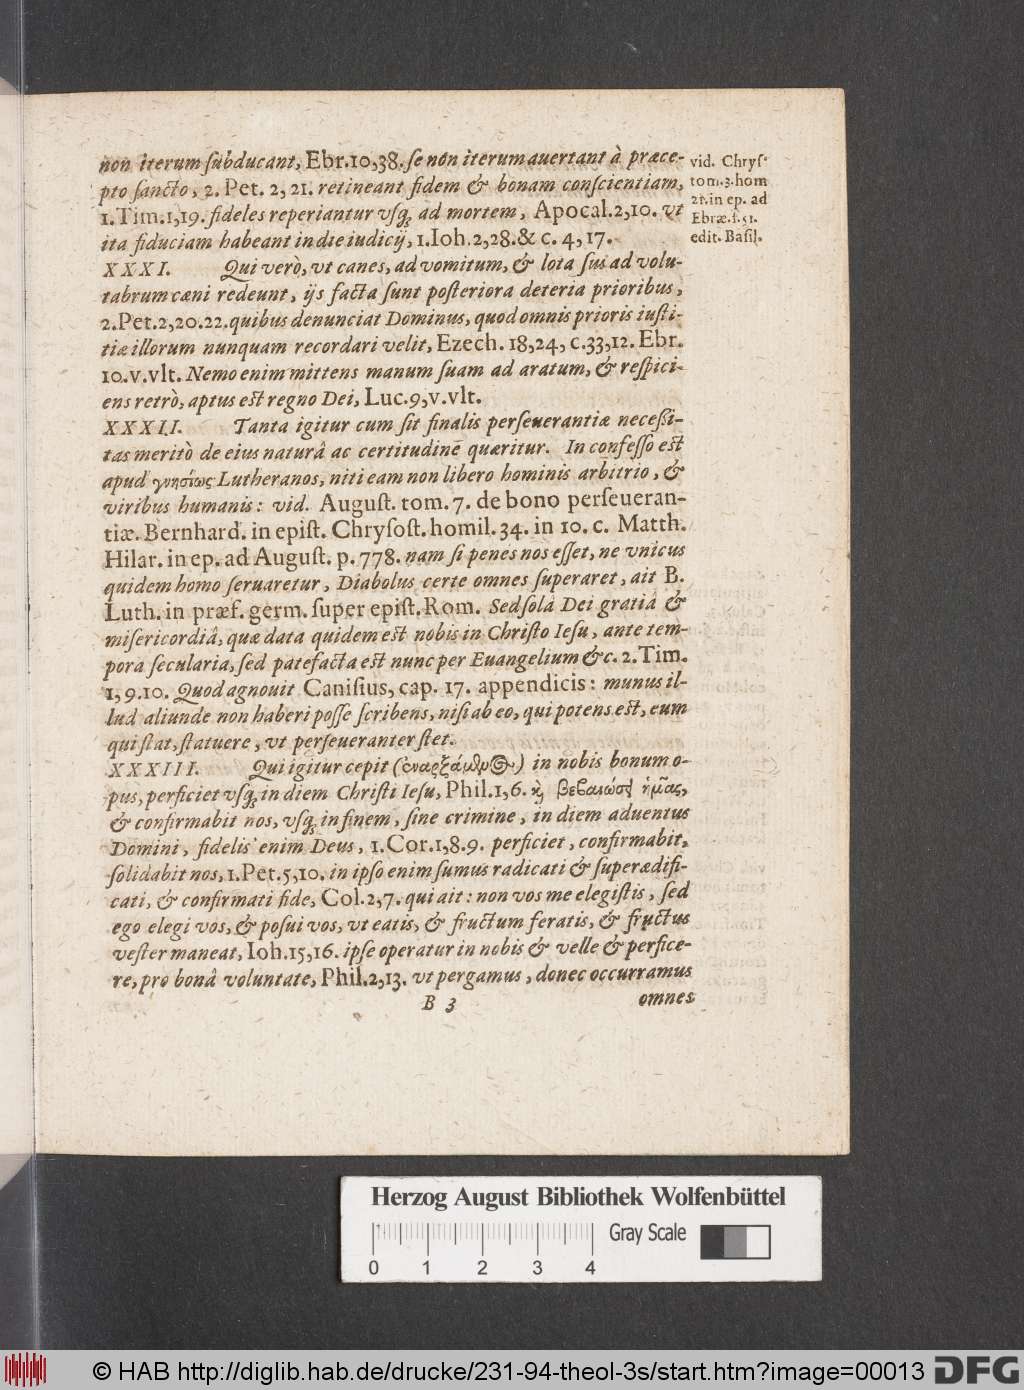 non iterum ſubducant, Ebr. 10,38. ſe non iterum auertant à præce-
pto ſancto, 2. Pet. 2, 21. retineant fidem & bonam conſcientiam,
1. Tim. 1,19. fideles reperiantur vſq; ad mortem, Apocal. 2,10. vt
ita fiduciam habeant in die iudicij, 1. Ioh. 2,28. & c. 4, 17.
vid. Chryſ.
tom. 3. hom
21. in ep. ad
Ebræ. f. 51.
edit. Baſil.
XXXI. Qui verò, vt canes, ad vomitum, & lota ſus ad volu-
tabrum cæni redeunt, ijs facta ſunt poſteriora deteria prioribus,
2. Pet. 2,20.22. quibus denunciat Dominus, quod omnis prioris iuſti-
tiæ illorum nunquam recordari velit, Ezech. 18,24, c. 33,12. Ebr.
10. v. vlt. Nemo enim mittens manum ſuam ad aratum, & reſpici-
ens retrò, aptus eſt regno Dei, Luc. 9, v. vlt.
XXXII. Tanta igitur cum ſit finalis perſeuerantiæ neceſſi-
tas meritò de eius naturâ ac certitudinē quæritur. In confeſſo eſt
apud γνησίως Lutheranos, niti eam non libero hominis arbitrio, &
viribus humanis: vid. Auguſt. tom. 7. de bono perſeueran-
tiæ. Bernhard. in epiſt. Chryſoſt. homil. 34. in 10. c. Matth.
Hilar. in ep. ad Auguſt. p. 778. nam ſi penes nos eſſet, ne vnicus
quidem homo ſeruaretur, Diabolus certe omnes ſuperaret, ait B.
Luth. in præf. germ. ſuper epiſt. Rom. Sed ſolâ Dei gratiâ &
miſericordiâ, quæ data quidem eſt nobis in Chriſto Ieſu, ante tem-
pora ſecularia, ſed patefacta eſt nunc per Euangelium &c. 2. Tim.
1, 9. 10. Quod agnouit Caniſius, cap. 17. appendicis: munus il-
lud aliunde non haberi poſſe ſcribens, niſi ab eo, qui potens eſt, eum
qui ſtat, ſtatuere, vt perſeueranter ſtet.
XXXIII. Qui igitur cepit (ἐναρξάμενος) in nobis bonum o-
pus, perficiet vſq; in diem Chriſti Ieſu, Phil. 1, 6. καὶ βεβαιώσει ἡμᾶς,
& confirmabit nos, vſq; in finem, ſine crimine, in diem aduentus
Domini, fidelis enim Deus, 1. Cor. 1,8.9. perficiet, confirmabit,
ſolidabit nos, 1. Pet. 5, 10. in ipſo enim ſumus radicati & ſuperædifi-
cati, & confirmati fide, Col. 2, 7. qui ait: non vos me elegiſtis, ſed
ego elegi vos, & poſui vos, vt eatis, & fructum feratis, & fructus
veſter maneat, Ioh. 15,16. ipſe operatur in nobis & velle & perfice-
re, pro bonâ voluntate, Phil. 2,13. vt pergamus, donec occurramus
B 3 omnes
Herzog August Bibliothek Wolfenbüttel
Gray Scale
0 1 2 3 4
© HAB http://diglib.hab.de/drucke/231-94-theol-3s/start.htm?image=00013 DFG